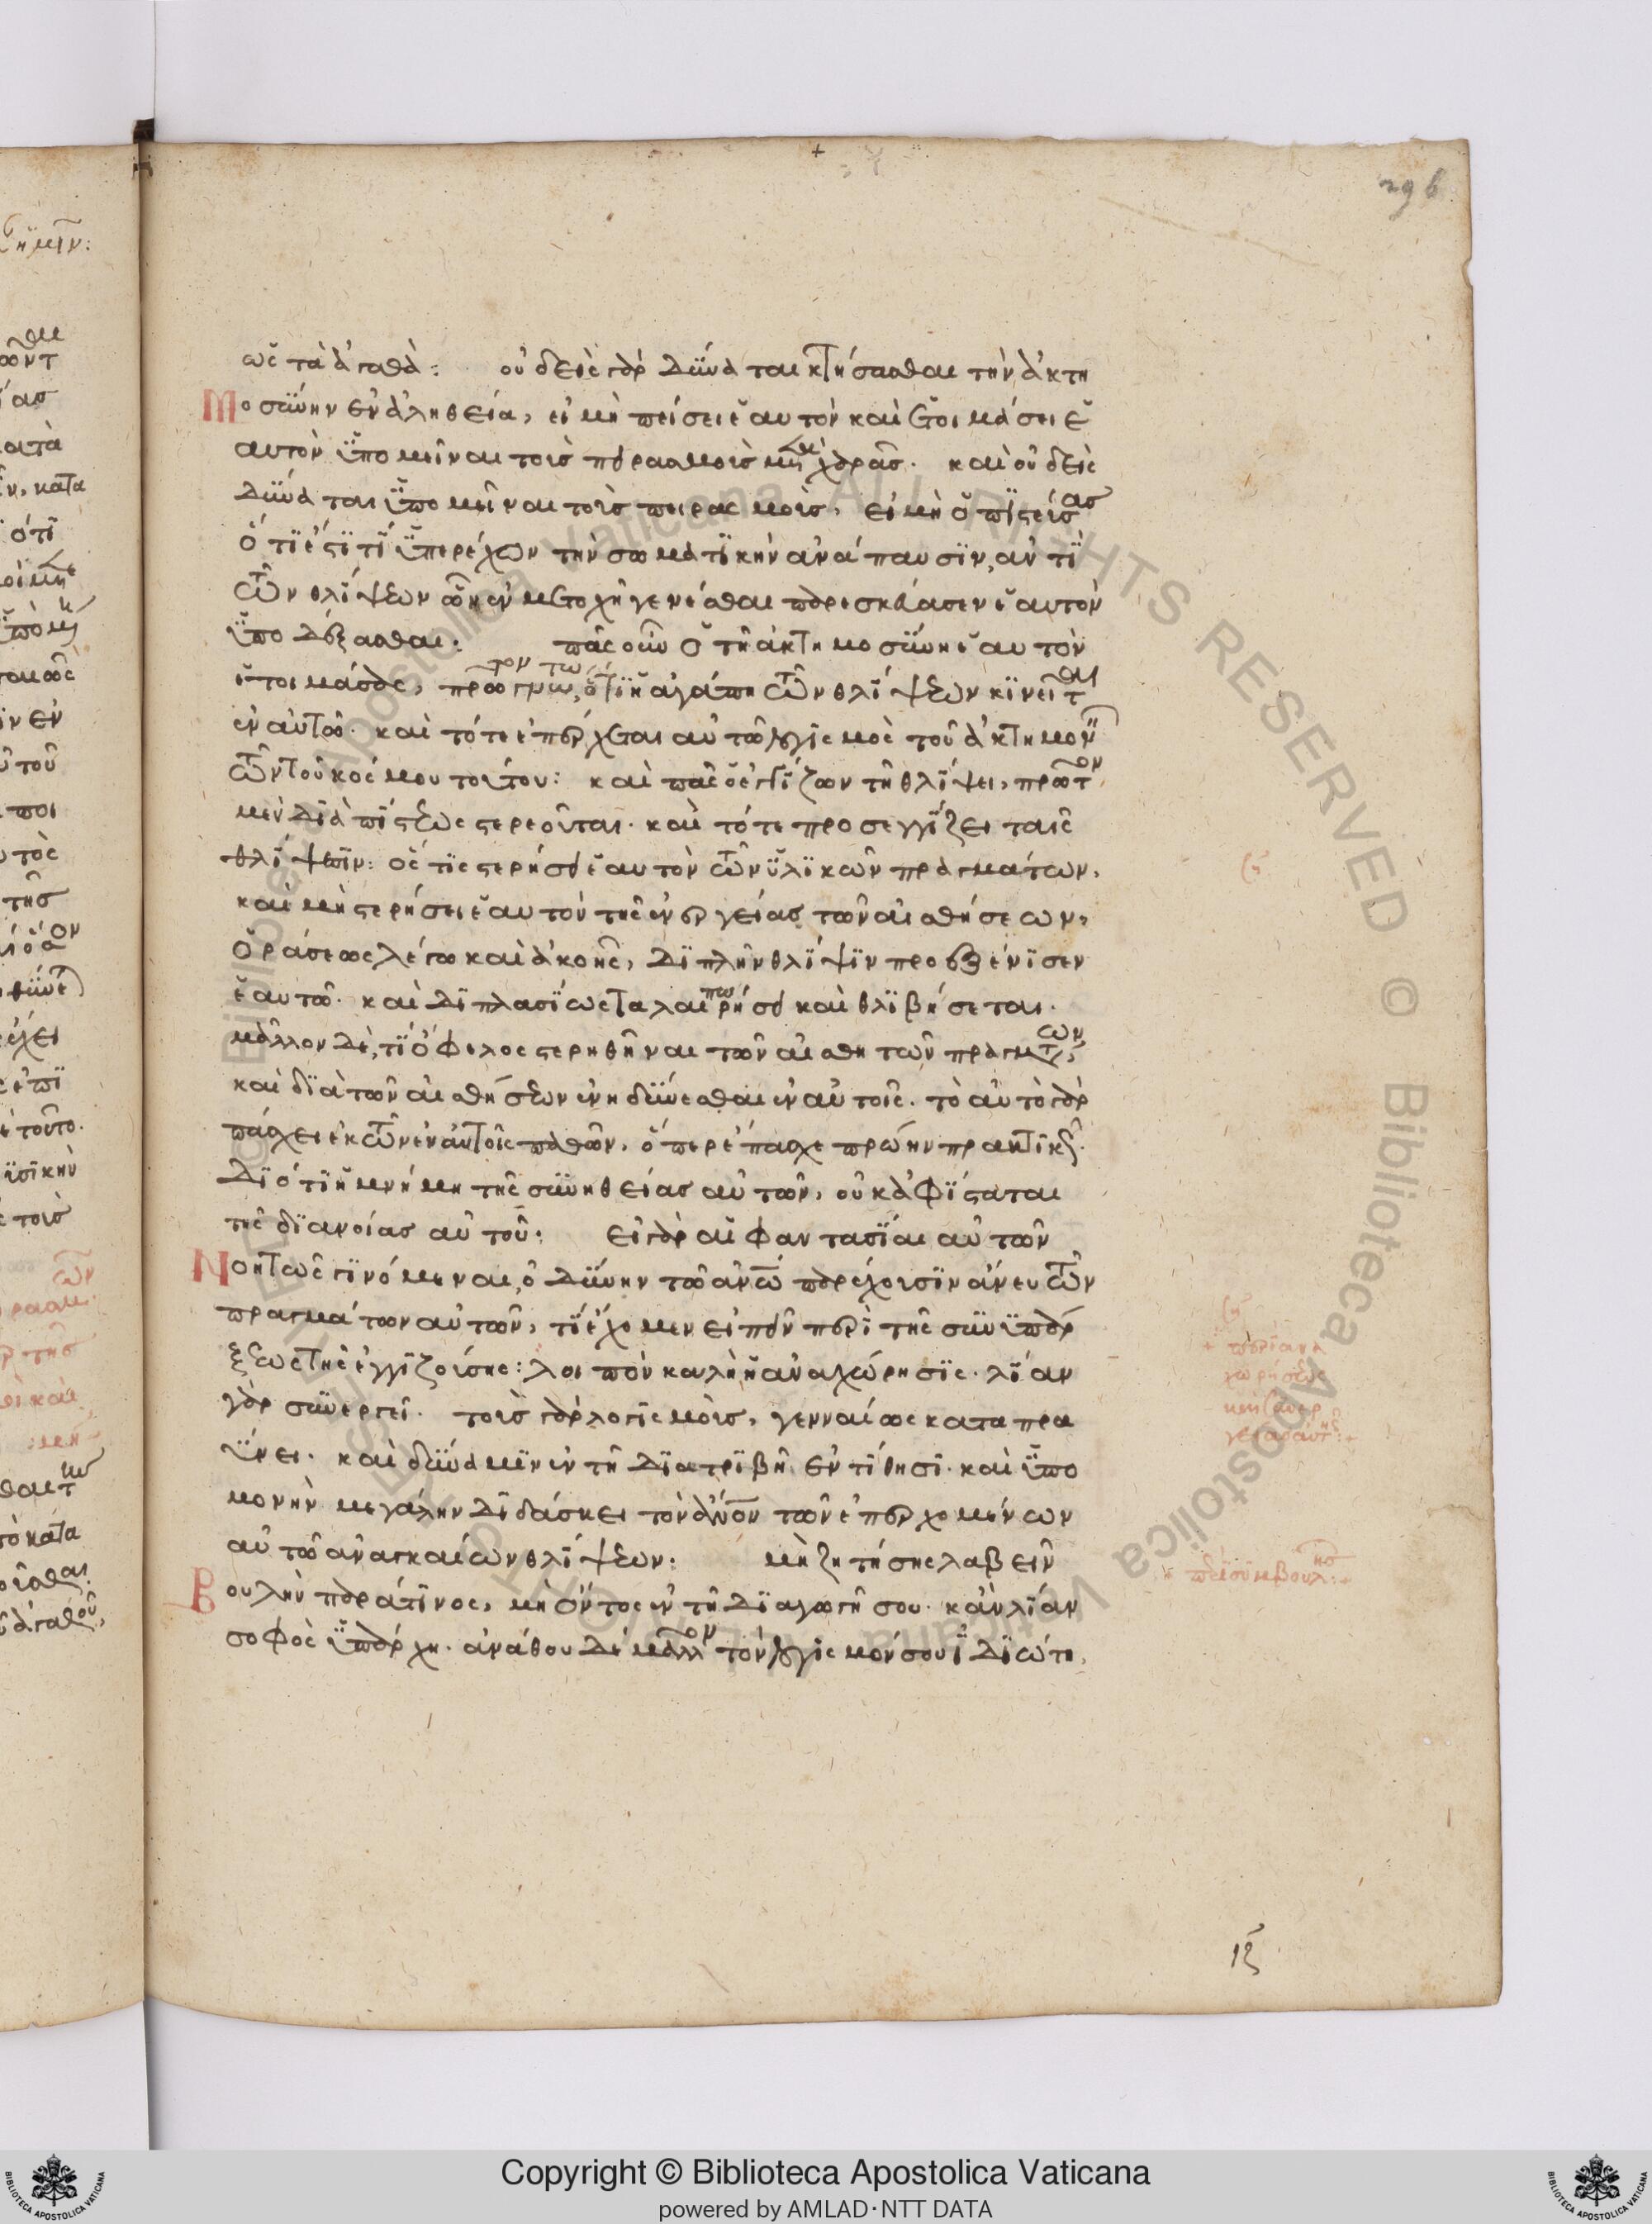 296
ὡς τὰ ἀγαθά: οὐδεὶς γὰρ δύναται κτήσασθαι τὴν ἀκτη
μοσύνην ἐν ἀληθεία, εἰ μὴ πείσει ἑαυτὸν καὶ ἑτοιμάσει ἑ
αυτὸν ὑπομεῖναι τοῖς πειρασμοῖς μετὰ χαρᾶς. καὶ οὐδεὶς
δύναται ὑπομεῖναι τοῖς πειρασμοῖς, εἰ μὴ ὁ πιστεύσας
ὅτι ἐστί τι ὑπερέχων τὴν σωματικὴν ἀνάπαυσιν, ἀντὶ
τῶν θλίψεων ὧν ἐν μετοχῇ γενέσθαι παρεσκεύασεν ἑαυτὸν
ὑποδέξασθαι: πᾶς οὖν ὁ τῇ ἀκτημοσύνη ἑαυτὸν
ἑτοιμάσας, πρῶτον ἡ ἀγάπη τῶν θλίψεων κινεῖται
ἐν αὐτῷ. καὶ τότε ἐπέρχεται αὐτῷ λογισμὸς τοῦ ἀκτημον
τῶν τοῦ κόσμου τούτου: καὶ πᾶς ὁ ἐγγίζων τῇ θλίψει, πρῶτον
μὲν διὰ πίστεως στερεοῦται. καὶ τότε προσεγγίζει ταῖς
θλίψεσιν: ὅστις στερήσει ἑαυτὸν τῶν ὑλικῶν πραγμάτων,
καὶ μὴ στερήσει ἑαυτὸν τῆς ἐνεργείας τῶν αἰσθήσεων,
ὁράσεως λέγω καὶ ἀκοῆς, διπλῆν θλίψιν προεξένισεν
ἑαυτῷ. καὶ διπλασίως ταλαιπωρήσει καὶ θλιβήσεται.
μᾶλλον δὲ, τί ὄφελος στερηθῆναι τῶν αἰσθητῶν πραγμάτων,
καὶ διὰ τῶν αἰσθήσεων ἐνηδύνεσθαι ἐν αὐτοῖς. τὸ αὐτὸ γὰρ
πάσχει ἐκ τῶν ἐν αὐτοῖς παθῶν, ὅπερ ἔπασχε πρώην πρακτικῶς.
διότι ἡ μνήμη τῆς συνηθείας αὐτῶν, οὐκ ἀφίσταται
τῆς διανοίας αὐτοῦ: εἰ γὰρ αἱ φαντασίαι αὐτῶν
νοητῶς γινόμεναι, ὀδύνην τῷ ἀνῳ παρέχουσιν ἄνευ τῶν
πραγμάτων αὐτῶν, τί ἔχομεν εἰπεῖν περὶ τῆς συνυπάρ
ξεως τῆς ἐγγιζούσης: λοιπὸν καλὴ ἡ ἀναχώρησις. λίαν
γὰρ συνεργεῖ. τοῖς γὰρ λογισμοῖς, γενναίως καταπρα
ΰνει. καὶ δύναμιν ἐν τῇ διατριβῇ ἐντίθησι. καὶ ὑπο
μονὴν μεγάλην διδάσκει τὸν ἀνον τῶν ἐπερχομένων
αὐτῷ ἀναγκαίων θλίψεων: μὴ ζητήσης λαβεῖν
βουλὴν παρά τινος, μὴ ὄντος ἐν τῇ διαγωγῇ σου. κἂν λίαν
σοφὸς ὑπάρχη. ἀνάθου δὲ μᾶλλον τὸν λογισμόν σου ἰδιώτη,
+ περὶ ἀνα
χωρήσεως
καὶ συνερ
γείας αὐτῆς:+
+ περὶ συμβουλῆς:+
ιϛ
Copyright © Biblioteca Apostolica Vaticana
powered by AMLAD·NTT DATA